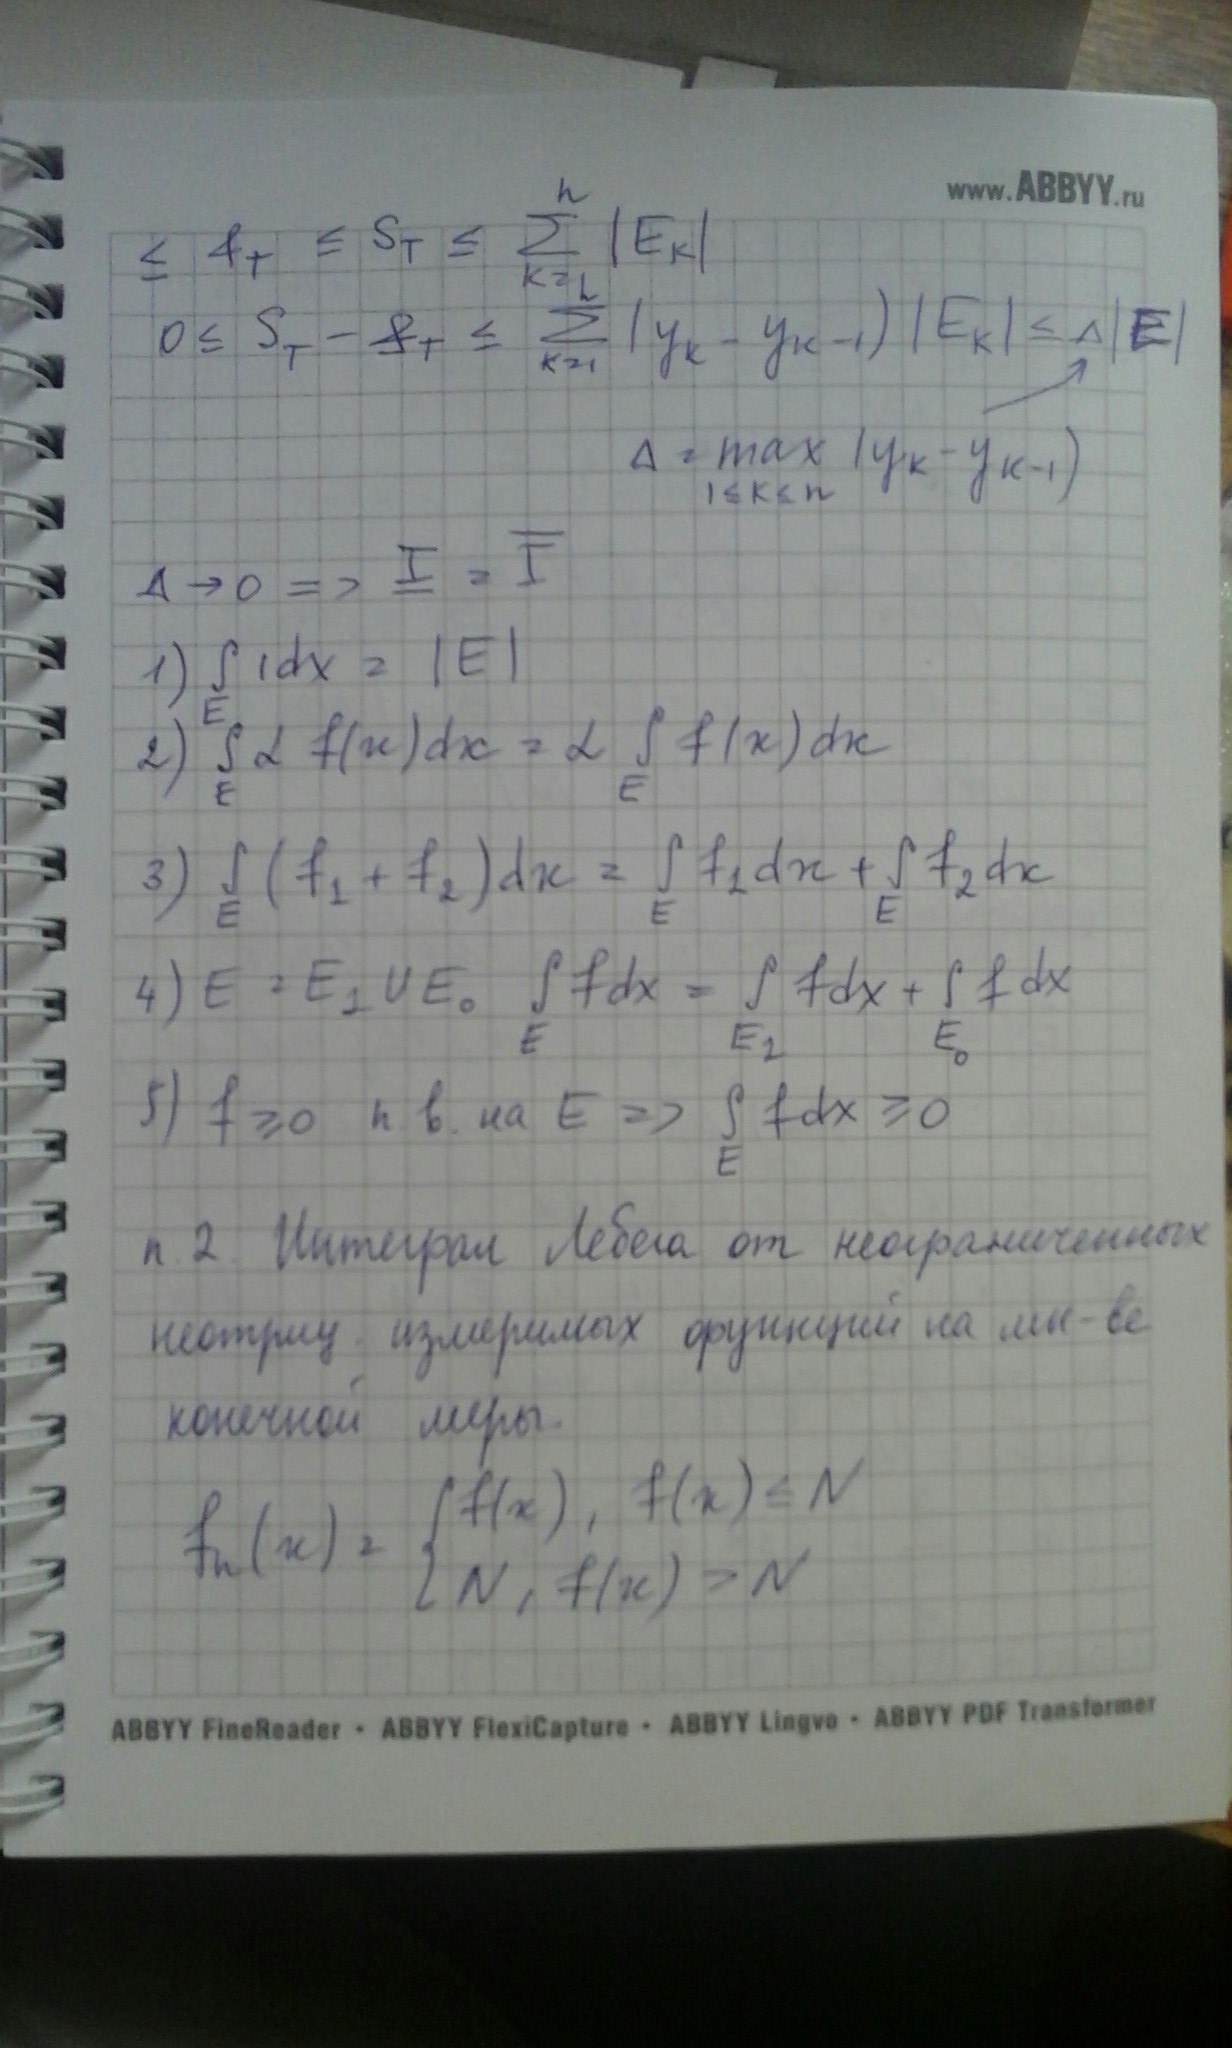 www.ABBYY.ru
≤ s_T ≤ S_T ≤ ∑_{k=1}^{n} |E_k|
0 ≤ S_T − s_T ≤ ∑_{k=1}^{n} (y_k − y_{k−1}) |E_k| ≤ Δ|E|
Δ = max_{1≤k≤n} (y_k − y_{k−1})
Δ → 0 => I̲ = I̅
1) ∫_E 1dx = |E|
2) ∫_E α f(x)dx = α ∫_E f(x)dx
3) ∫_E (f_1 + f_2)dx = ∫_E f_1dx + ∫_E f_2dx
4) E = E_1 ∪ E_0 ∫_E fdx = ∫_{E_1} fdx + ∫_{E_0} fdx
5) f ≥ 0 п.в. на E => ∫_E fdx ≥ 0
п.2. Интеграл Лебега от неограниченных
неотриц. измеримых функций на мн-ве
конечной меры.
f_n(x) = { f(x), f(x) ≤ N
N, f(x) > N
ABBYY FineReader • ABBYY FlexiCapture • ABBYY Lingvo • ABBYY PDF Transformer